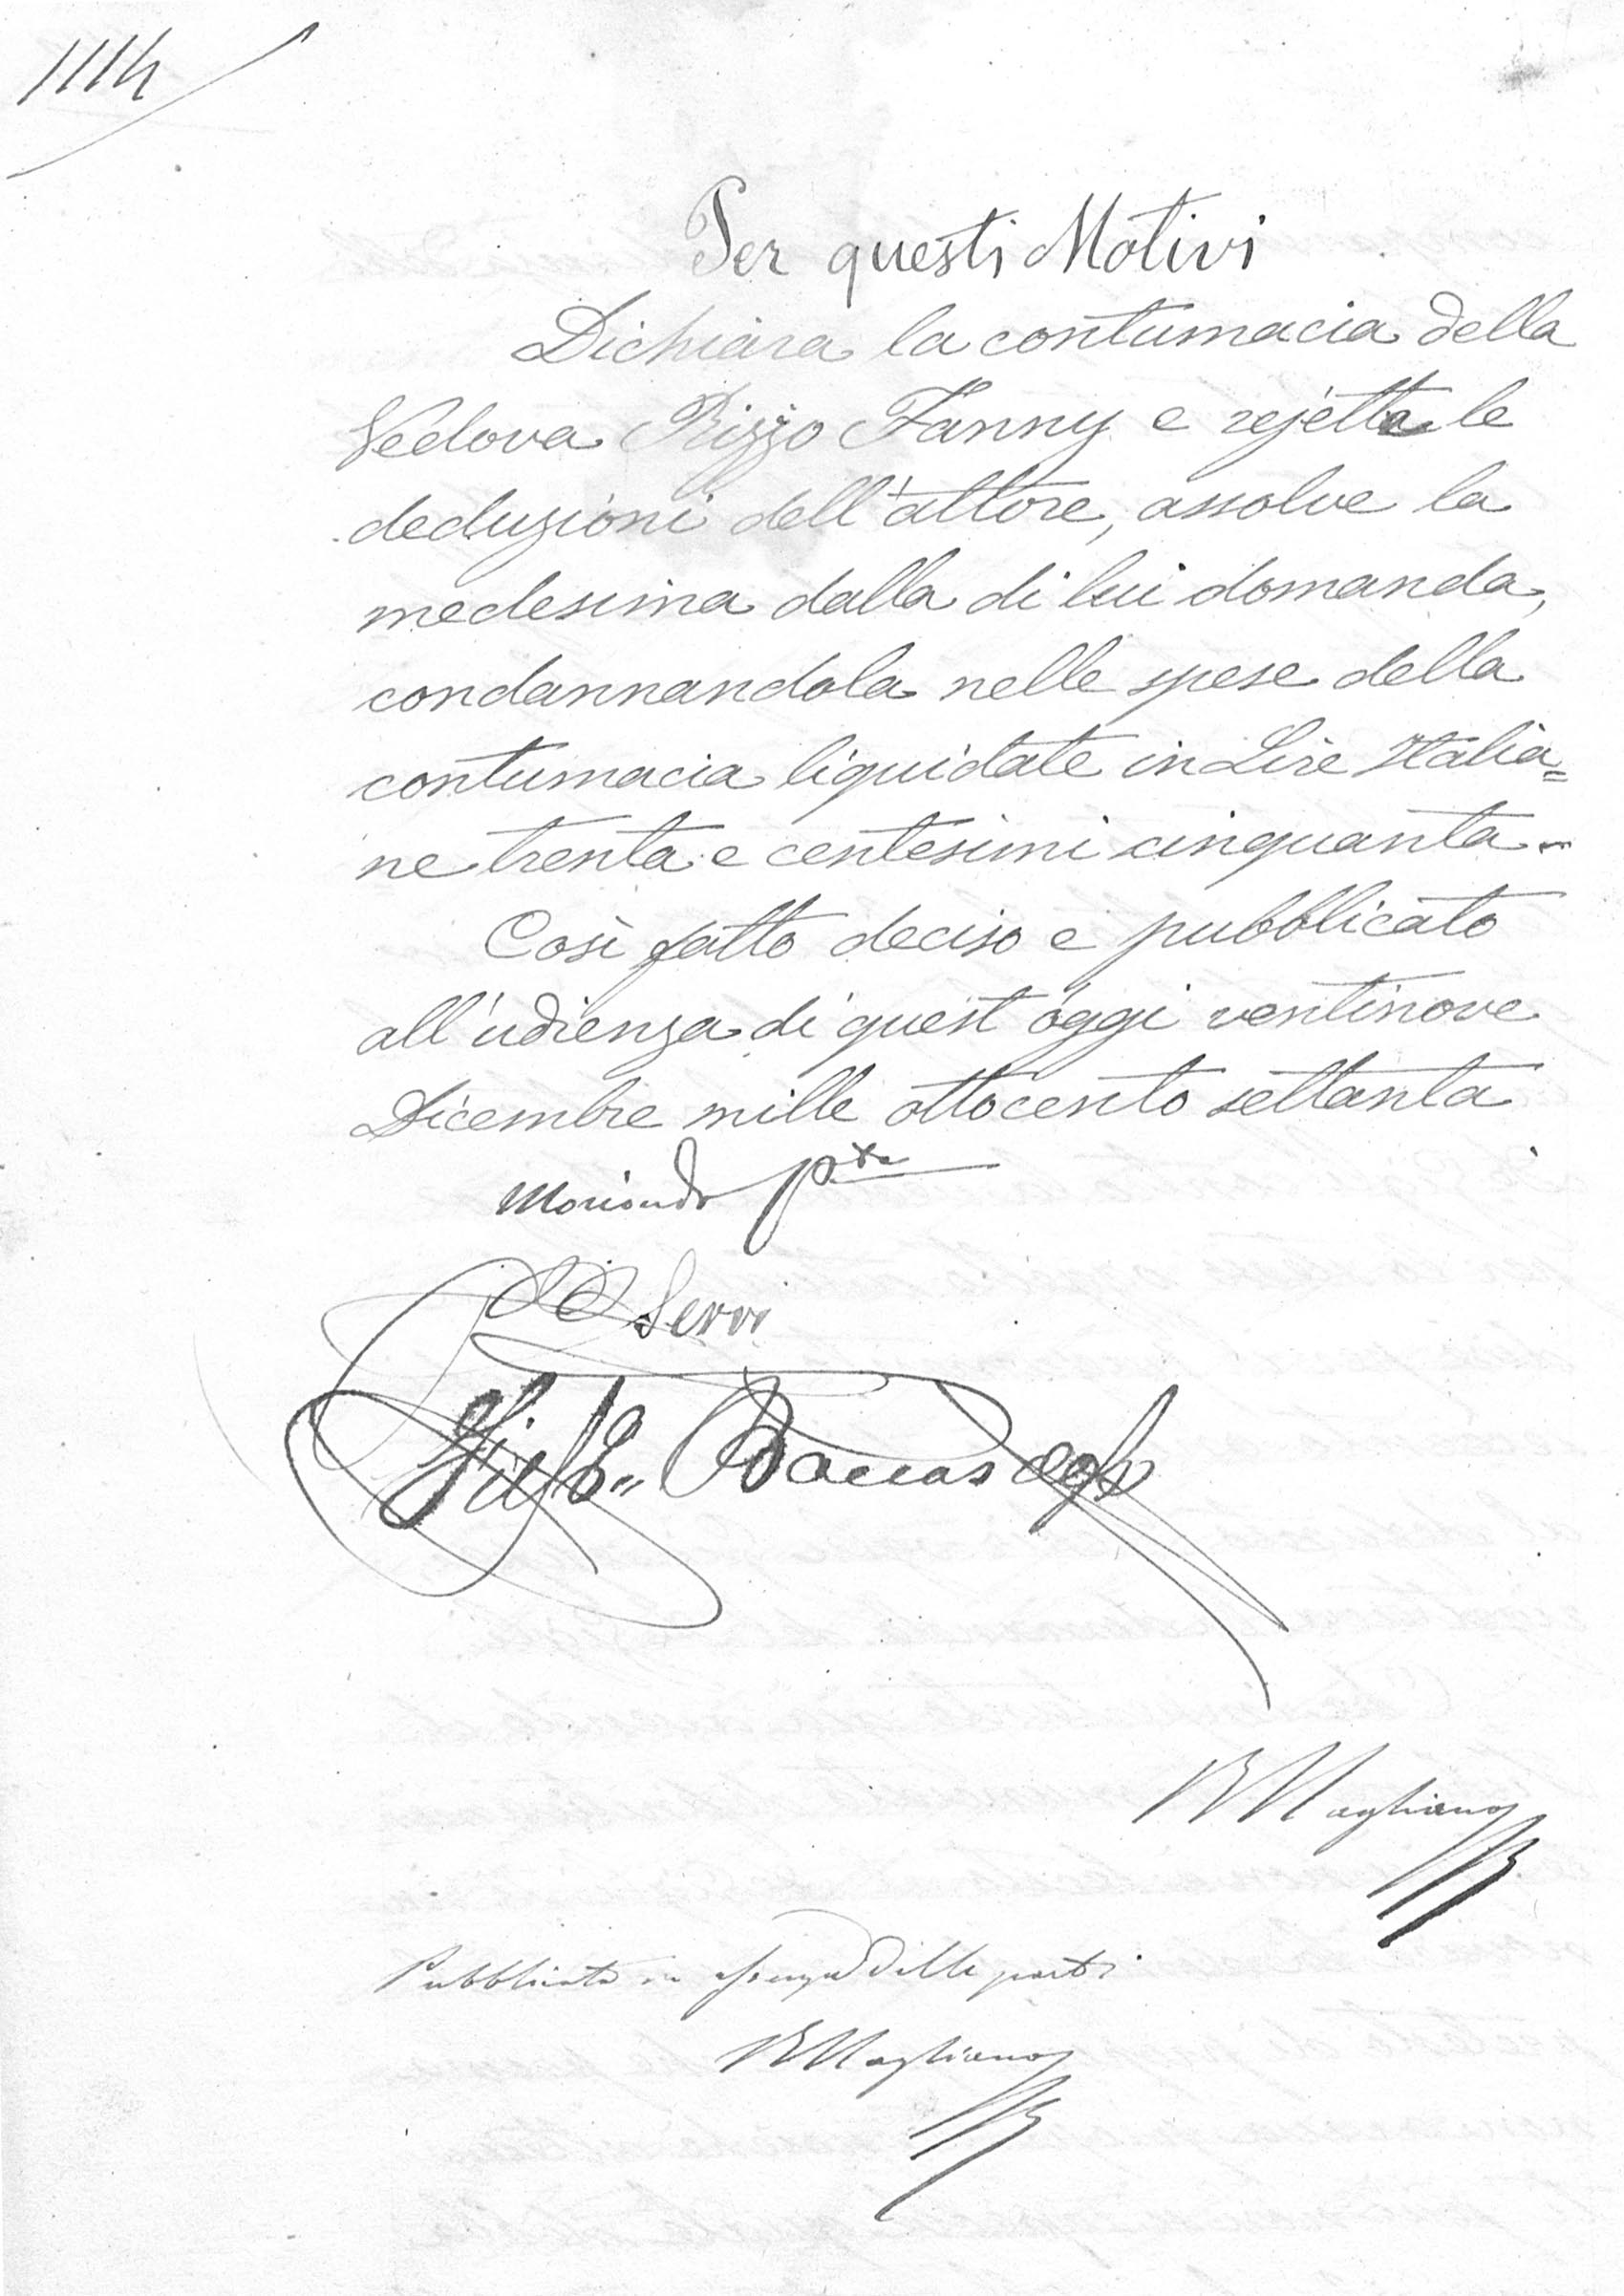 1114
Per questi Motivi
Dichiara la contumacia della
Vedova Rizzo Fanny e rejette le
deduzioni dell'attore, assolve la
medesima dalla di lui domanda,
condannandola nelle spese della
contumacia liquidate in Lire Italia=
ne trenta e centesimi cinquanta.
Così fatto deciso e pubblicato
all'udienza di quest'oggi ventinove
Dicembre mille ottocento settanta
Moriondo P.te
Servi
B Magliano
Pubblicata in assenza delle parti
B Magliano